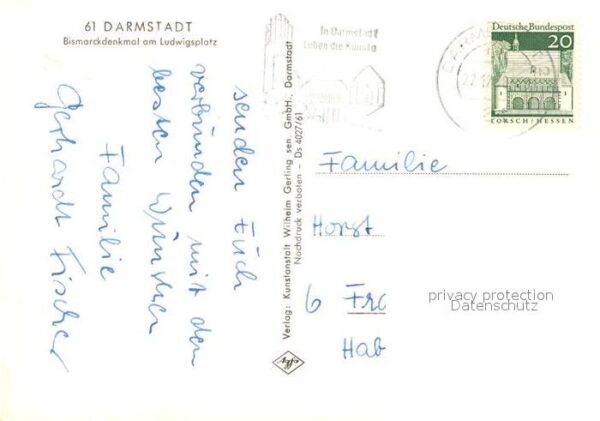 61 DARMSTADT
Bismarckdenkmal am Ludwigsplatz
senden Euch
verbunden mit den
besten Wünschen
Familie
Gerhardt Fischer
Verlag: Kunstanstalt Wilhelm Gerling sen. GmbH., Darmstadt
Nachdruck verboten - Ds 4027/61
In Darmstadt
Leben die Künste
Deutsche Bundespost
20
LORSCH/HESSEN
Familie
Horst
6 Frc
Hab
privacy protection
Datenschutz